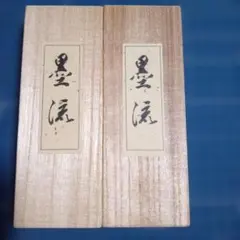 墨流
墨流